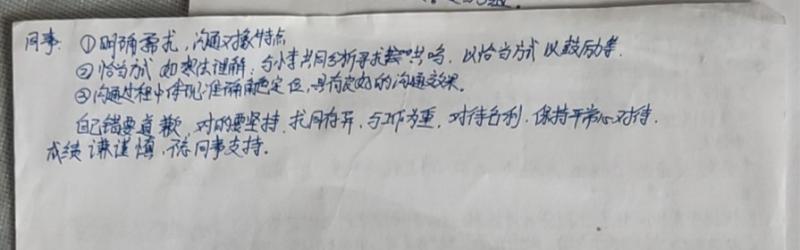 同事：①明确需求，沟通对象特点
②恰当方式 如想法理解，与小李共同分析寻求共鸣，以恰当方式以鼓励等.
③沟通过程中体现准确角色定位，具有良好的沟通效果。
自己错要道歉，对的要坚持，求同存异，与工作为重，对待名利，保持平常心对待.
成绩 谦谨慎，感同事支持.